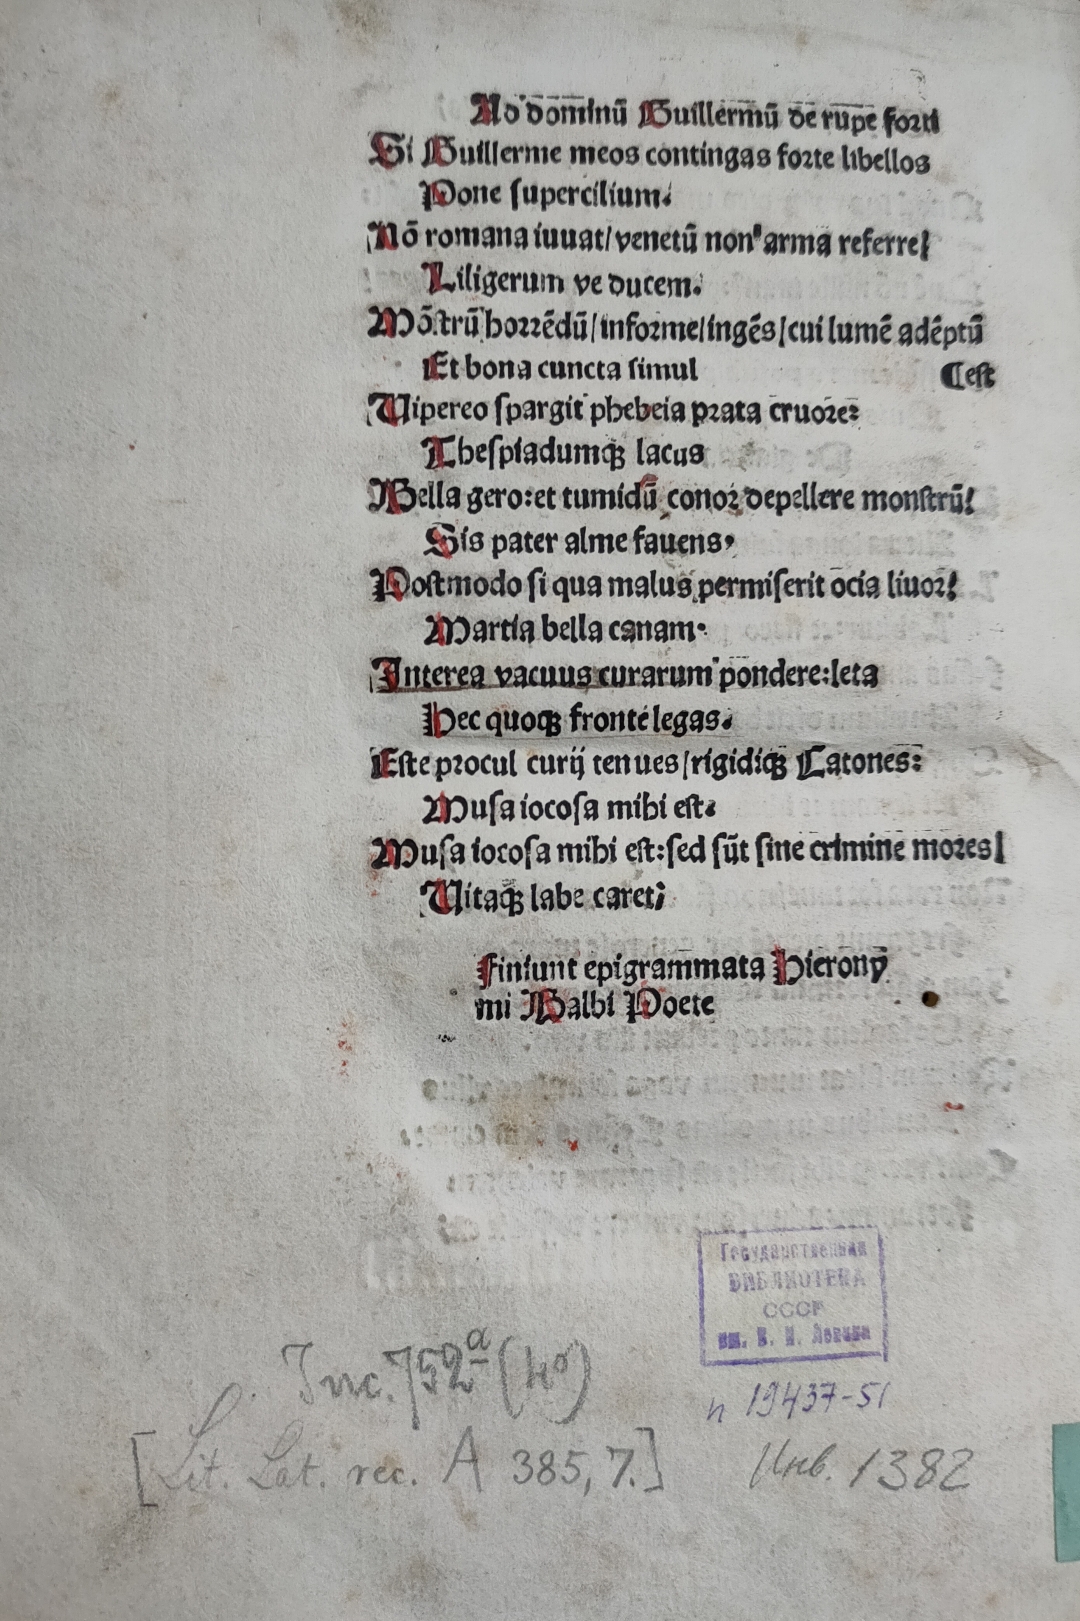 Ad dominū Guillermū de rupe forti
Si Guillerme meos contingas forte libellos
Pone supercilium.
Nō romana iuuat/venetū non arma referre/
Liligerum ve ducem.
Mōstrū horrēdū/informe/ingēs/cui lumē adēptū
Et bona cuncta simul ⸿est
Vipereo spargit phebeia prata cruore:
Thespiadumqꝫ lacus
Bella gero:et tumidū conor depellere monstrū/
Sis pater alme fauens.
Postmodo si qua malus permiserit ocia liuor/
Martia bella canam.
Interea vacuus curarum pondere:leta
Hec quoqꝫ fronte legas.
Este procul curij tenues/rigidiqꝫ Catones:
Musa iocosa mihi est.
Musa iocosa mihi est:sed sūt sine crimine mores/
Vitaqꝫ labe caret;
Finiunt epigrammata Hierony
mi Balbi Poete
Государственная
БИБЛИОТЕКА
СССР
им. В. И. Ленина
Inc. 752ª (4º)
п 19437-51
[Lit. Lat. rec. A 385, 7.]
Инв. 1382